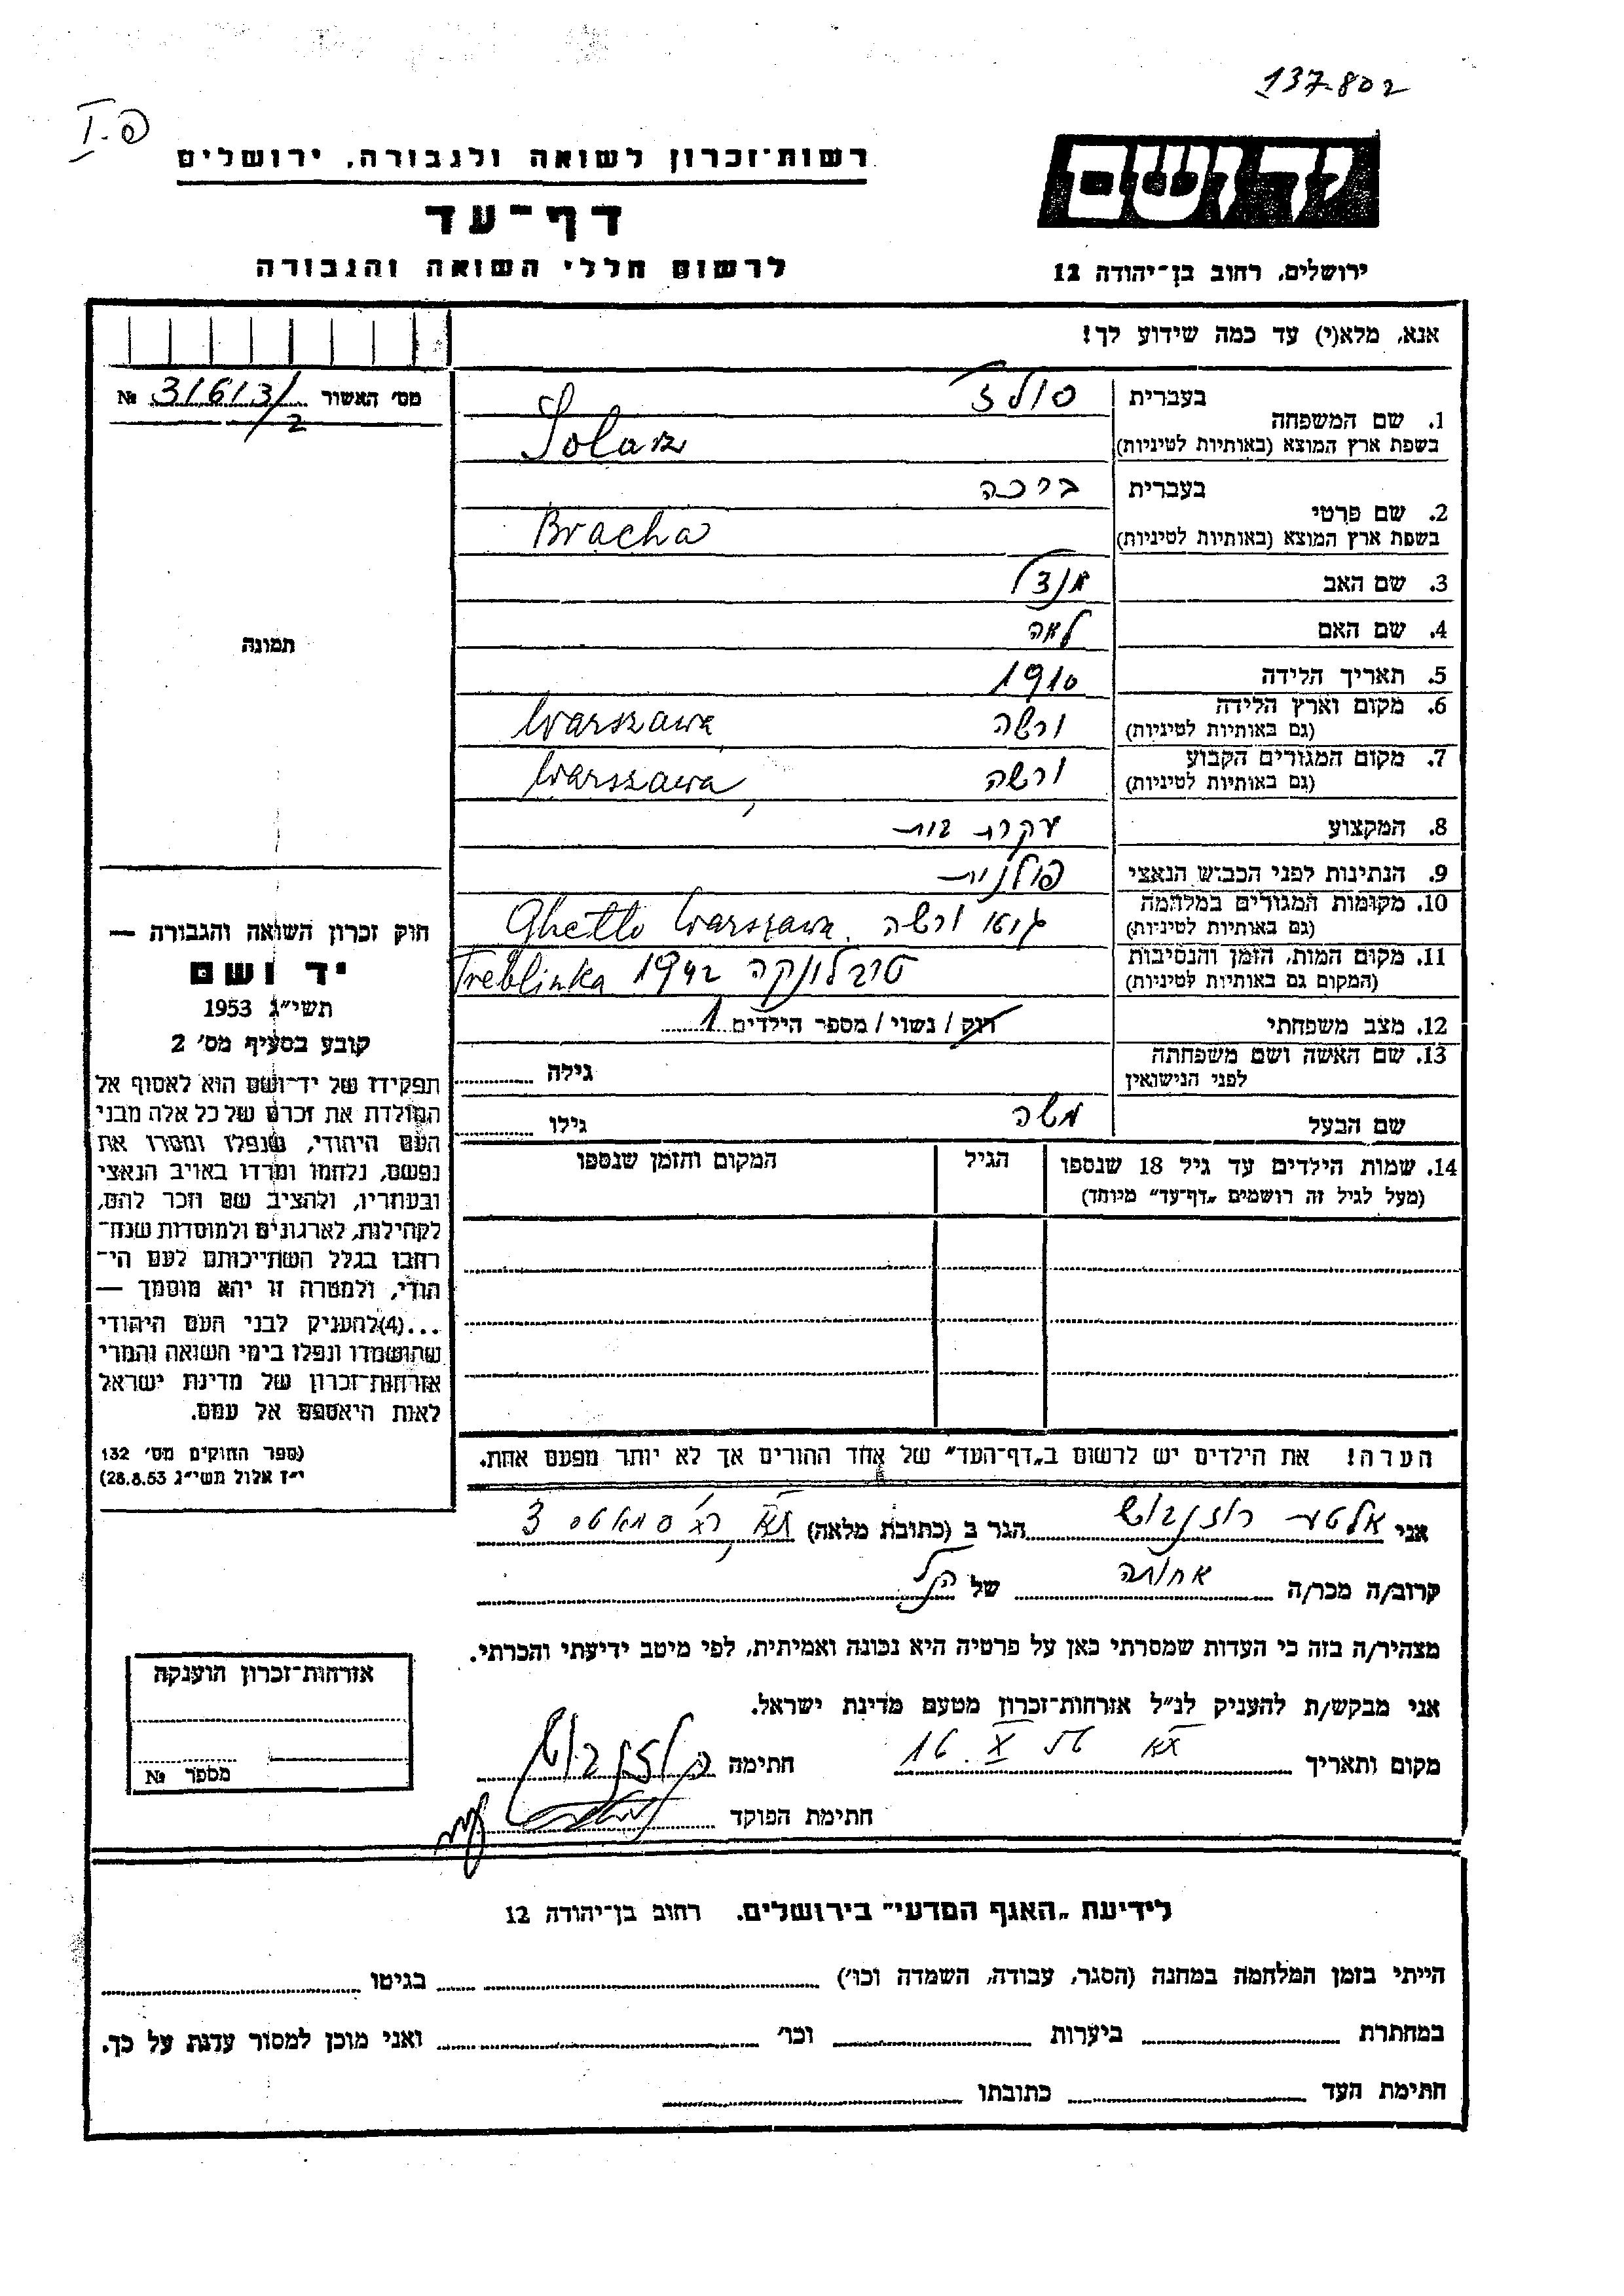 137802
פ.I
יד ושם
רשות־זכרון לשואה ולגבורה, ירושלים
דף־עד
לרשום חללי השואה והגבורה
ירושלים, רחוב בן־יהודה 12
אנא, מלא(י) עד כמה שידוע לך!
מס׳ האשור 31613/2 №
1. שם המשפחה
בעברית סולז
בשפת ארץ המוצא (באותיות לטיניות) Solarz
2. שם פרטי
בעברית ברכה
בשפת ארץ המוצא (באותיות לטיניות) Bracha
3. שם האב מנדל
4. שם האם לאה
5. תאריך הלידה 1910
6. מקום וארץ הלידה ורשה Warszawa
(גם באותיות לטיניות)
7. מקום המגורים הקבוע ורשה Warszawa
(גם באותיות לטיניות)
8. המקצוע עקרת בית
9. הנתינות לפני הכבוש הנאצי פולנית
10. מקומות המגורים במלחמה גיטו ורשה Ghetto Warszawa
(גם באותיות לטיניות)
11. מקום המות, הזמן והנסיבות טרבלינקה 1942 Treblinka
(המקום גם באותיות לטיניות)
12. מצב משפחתי רווק / נשוי / מספר הילדים 1
13. שם האשה ושם משפחתה
לפני הנישואין
גילה
שם הבעל משה גילו
14. שמות הילדים עד גיל 18 שנספו
(מעל לגיל זה רושמים „דף־עד״ מיוחד)
הגיל
המקום והזמן שנספו
הערה! את הילדים יש לרשום ב„דף־העד״ של אחד ההורים אך לא יותר מפעם אחת.
תמונה
חוק זכרון השואה והגבורה —
יד ושם
תשי״ג 1953
קובע בסעיף מס׳ 2
תפקידו של יד־ושם הוא לאסוף אל
המולדת את זכרם של כל אלה מבני
העם היהודי, שנפלו ומסרו את
נפשם, נלחמו ומרדו באויב הנאצי
ובעוזריו, ולהציב שם וזכר להם,
לקהילות, לארגונים ולמוסדות שנח־
רבו בגלל השתייכותם לעם הי־
הודי, ולמטרה זו יהא מוסמך —
...(4)להעניק לבני העם היהודי
שהושמדו ונפלו בימי השואה והמרי
אזרחות־זכרון של מדינת ישראל
לאות היאספם אל עמם.
(ספר החוקים מס׳ 132
י״ז אלול תשי״ג 28.8.53)
אני אלטער רוזנבוש הגר ב (כתובת מלאה) ת״א רח׳ 3
קרוב/ה מכר/ה אחותה של הנ״ל
מצהיר/ה בזה כי העדות שמסרתי כאן על פרטיה היא נכונה ואמיתית, לפי מיטב ידיעתי והכרתי.
אני מבקש/ת להעניק לנ״ל אזרחות־זכרון מטעם מדינת ישראל.
מקום ותאריך ת״א 16. X חתימה
חתימת הפוקד
אזרחות־זכרון הוענקה
מספר №
לידיעת „האגף המדעי״ בירושלים, רחוב בן־יהודה 12
הייתי בזמן המלחמה במחנה (הסגר, עבודה, השמדה וכו׳) בגיטו
במחתרת ביערות וכו׳ ואני מוכן למסור עדות על כך.
חתימת העד כתובתו